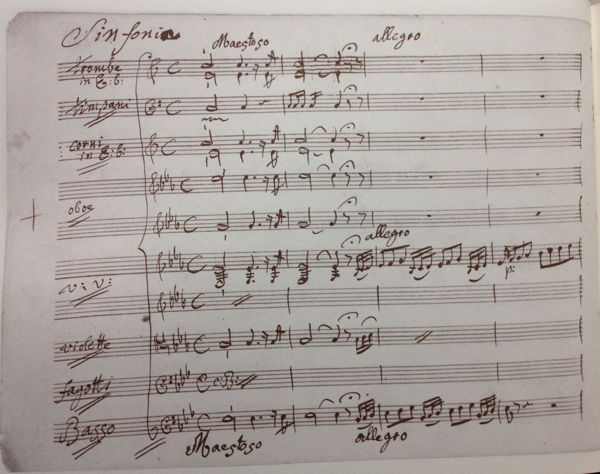 Sinfonia
Maestoso allegro
Trombe
in E:b:
Timpani
corni
in E:b:
oboe
allegro
v: v:
p:
violette
fagotti
c:B:
Basso
Maestoso allegro